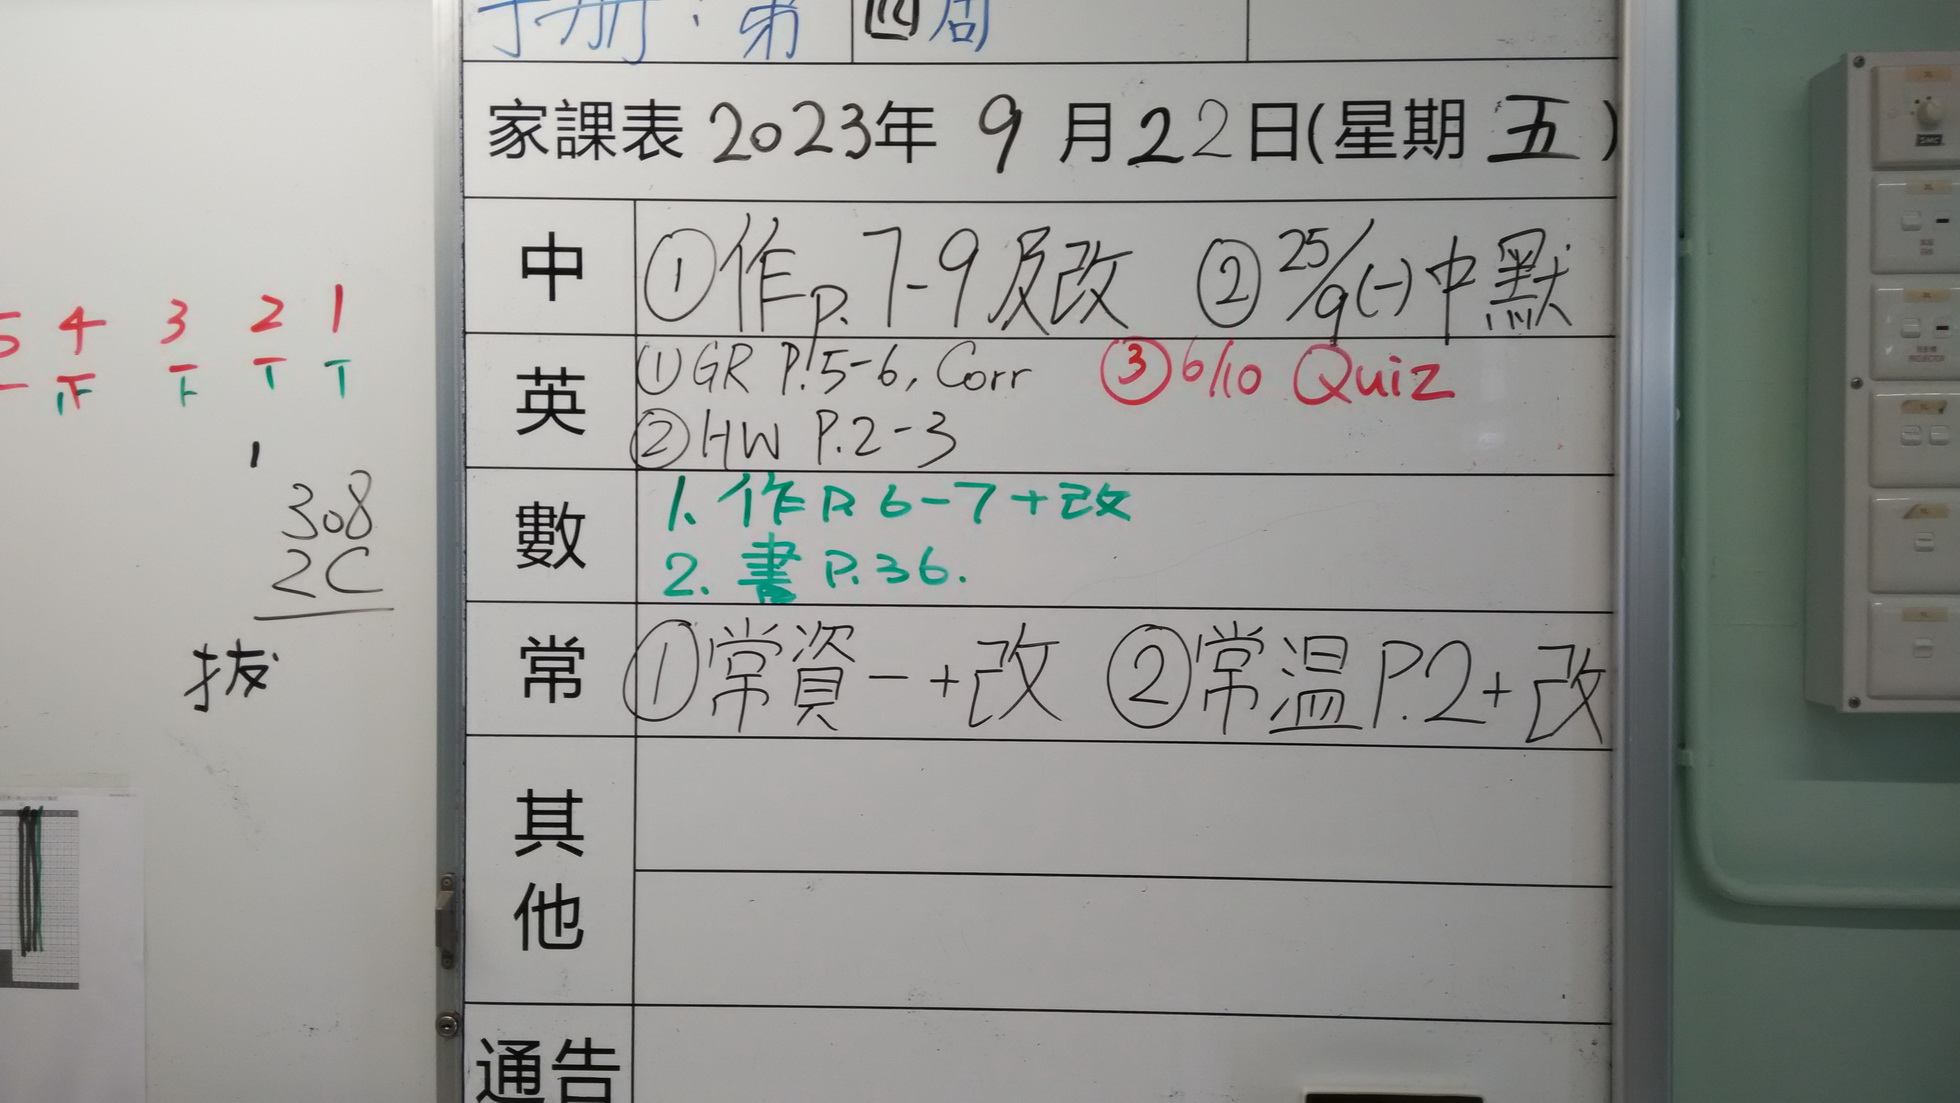 手册：第四周
家課表 2023年 9 月 22日(星期 五 )
中 ①作p.7-9及改 ②25/9(一)中默
英 ①GR P.5-6, Corr ③6/10 Quiz
②HW P.2-3
數 1. 作P. 6-7+改
2. 書P.36.
常 ①常資一+改 ②常温P.2+改
其他
通告
5 4 3 2 1
308
2C
拔